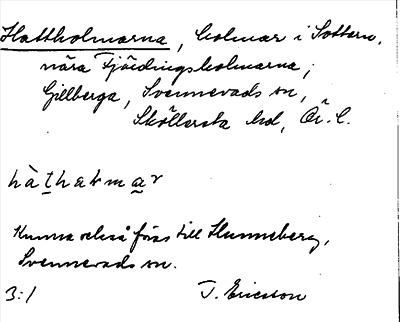 Hattholmarna, holmar i Sottern,
nära Fjärdingsholmarna;
Gillberga, Svennevads sn,
Sköllersta hd, Ör. l.
hàthɑrmar
Kunna också föras till Hunneberg,
Svennevads sn.
3:1 J. Ericson